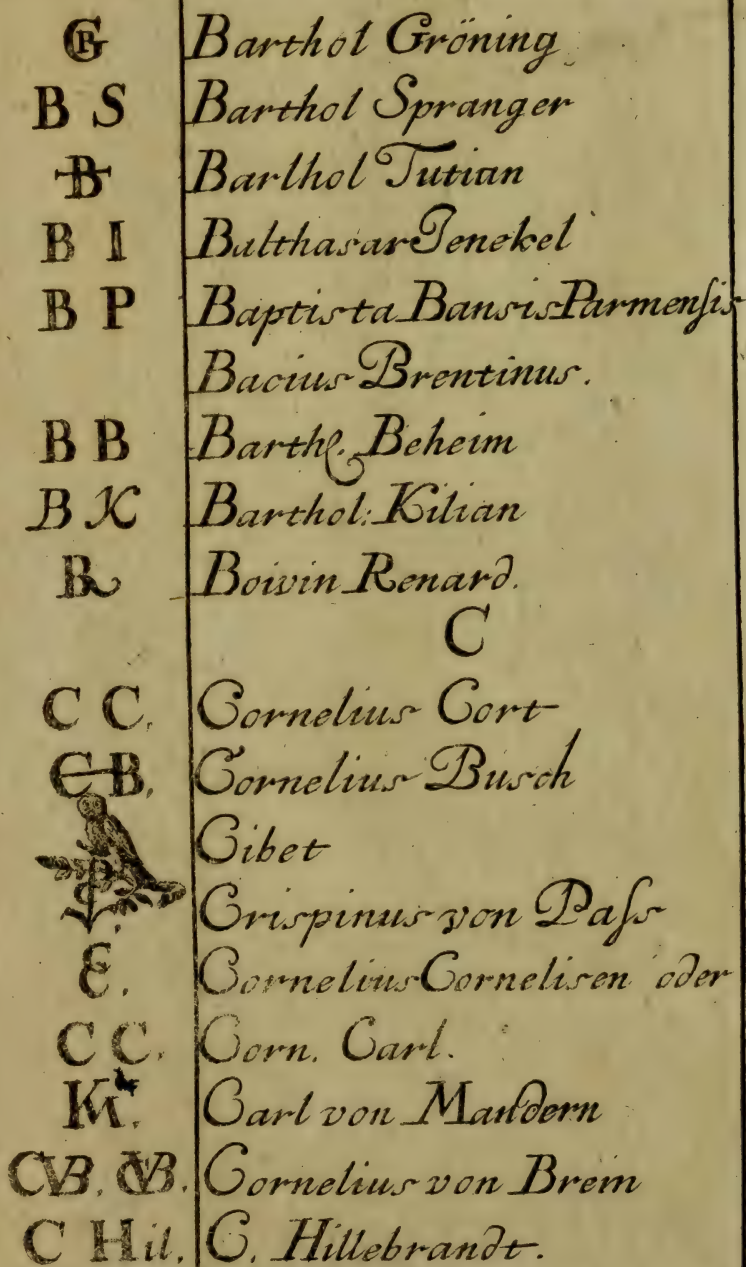 Barthol Gröning
B S Barthol Spranger
B Barthol Tutian
B I Balthasar Jenekel
B P Baptista Bansis Parmensis
Bacius Brentinus.
B B Barth. Beheim
B K Barthol: Kilian
R Boivin Renard.
C
C C. Cornelius Cort
CB. Cornelius Busch
Cibet
Crispinus von Paſs
Cornelius Cornelisen oder
C C. Corn. Carl.
Carl von Mandern
CVB. CVB. Cornelius von Brem
C Hil. C. Hillebrandt.